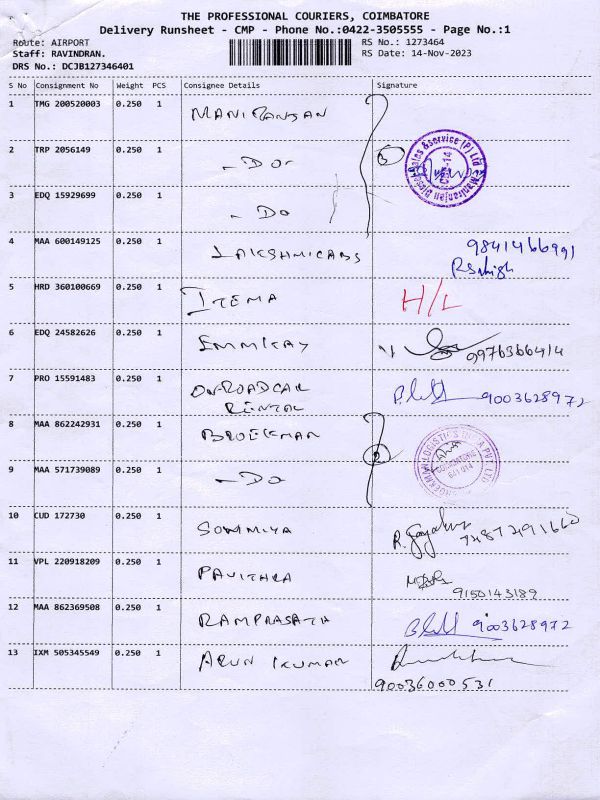 THE PROFESSIONAL COURIERS, COIMBATORE
Delivery Runsheet - CMP - Phone No.:0422-3505555 - Page No.:1
Route: AIRPORT RS No.: 1273464
Staff: RAVINDRAN. RS Date: 14-Nov-2023
DRS No.: DCJB127346401
S No Consignment No Weight PCS Consignee Details Signature
1 TMG 200520003 0.250 1 MANIRANJAN
2 TRP 2056149 0.250 1 - DO - 3
3 EDQ 15929699 0.250 1 - DO
4 MAA 600149125 0.250 1 LAKSHMICABS 9841466991
5 HRD 360100669 0.250 1 ITEMA H/L
6 EDQ 24582626 0.250 1 EMMIKAY 9976366414
7 PRO 15591483 0.250 1 ONROADCAR 9003628972
RENTAL
8 MAA 862242931 0.250 1 BROEKMAN
9 MAA 571739089 0.250 1 - DO 2
COIMBATORE
641 014
10 CUD 172730 0.250 1 SOWMIYA
11 VPL 220918209 0.250 1 PAVITHRA
9150143189
12 MAA 862369508 0.250 1 RAMPRASATH 9003628972
13 IXM 505345549 0.250 1 ARUN KUMAR
90036000531